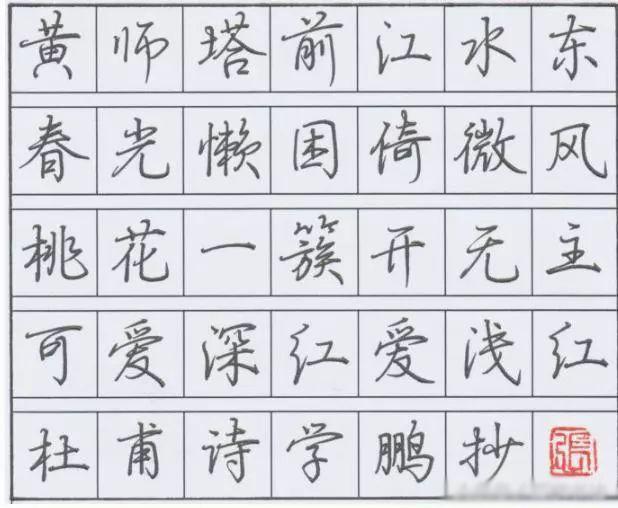 黄师塔前江水东
春光懒困倚微风
桃花一簇开无主
可爱深红爱浅红
杜甫诗学鹏抄
張